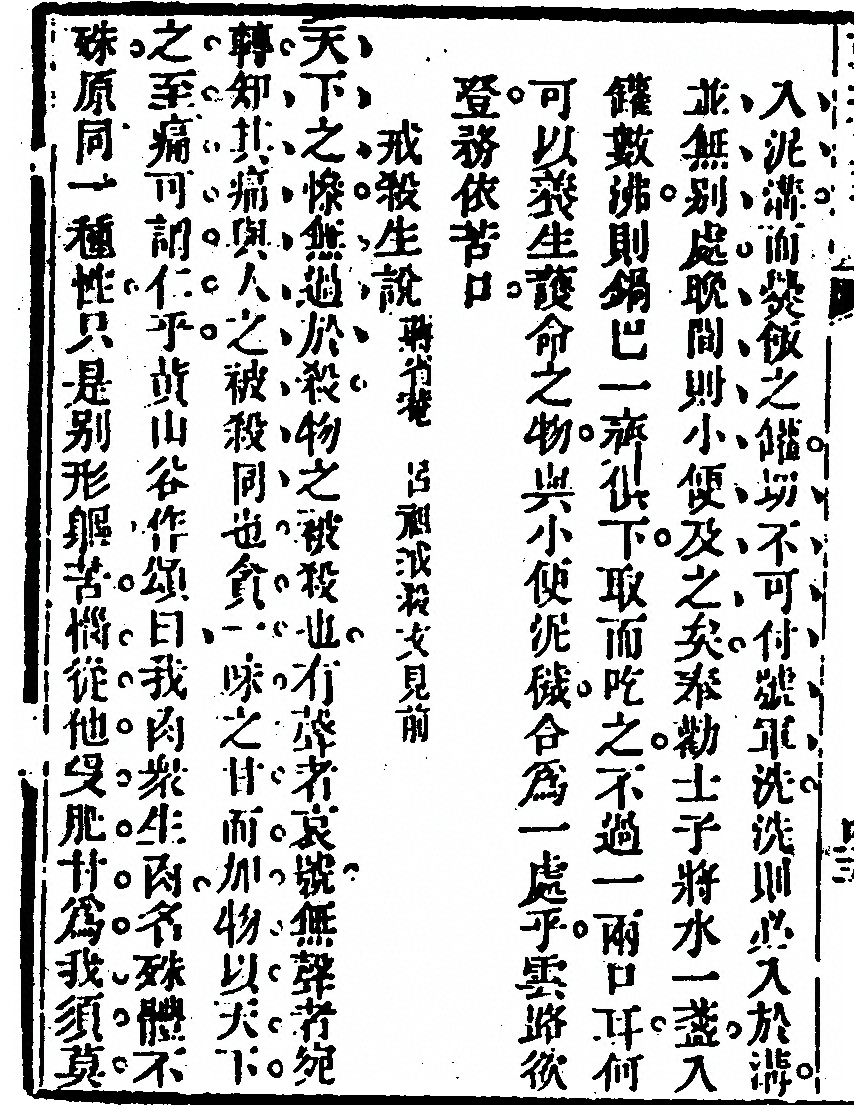 入泥溝而熒飯之罐切不可付號軍洗洗則必入於溝
並無别處晚間則小便及之矣奉勸士子將水一盞入
罐數沸則鍋巴一齊俱下取而吃之不過一兩口耳何
可以養生護命之物與小便泥穢合爲一處乎雲路欲
登務依苦口
戒殺生說 蔣省菴 呂祖戒殺文見前
天下之慘無過於殺物之被殺也有聲者哀號無聲者宛
轉知其痛與人之被殺同也貪一味之甘而加物以天下
之至痛可謂仁乎黄山谷作頌曰我肉衆生肉名殊體不
殊原同一種性只是别形軀苦惱從他受肥甘爲我須莫